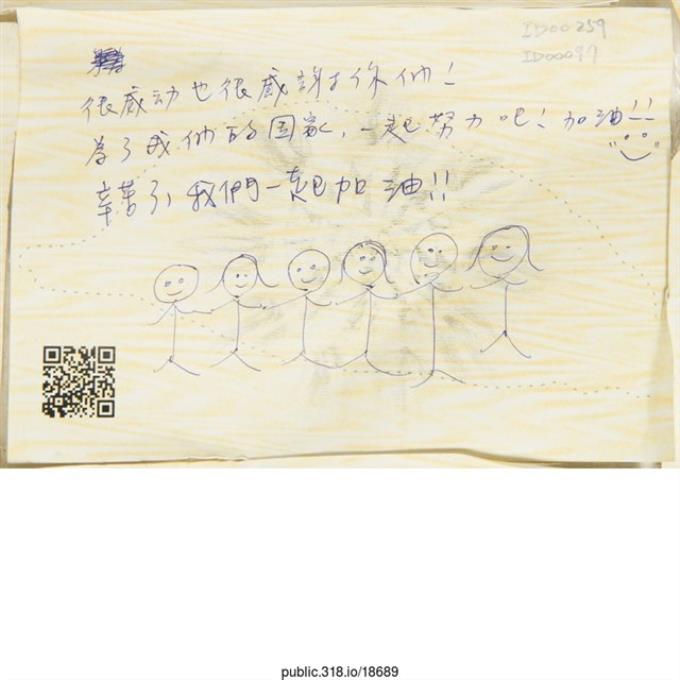 ID00259
ID00097
很感动也很感謝你们！
為了我们的国家，一起努力吧！加油!!
辛苦了，我們一起加油!!
public.318.io/18689